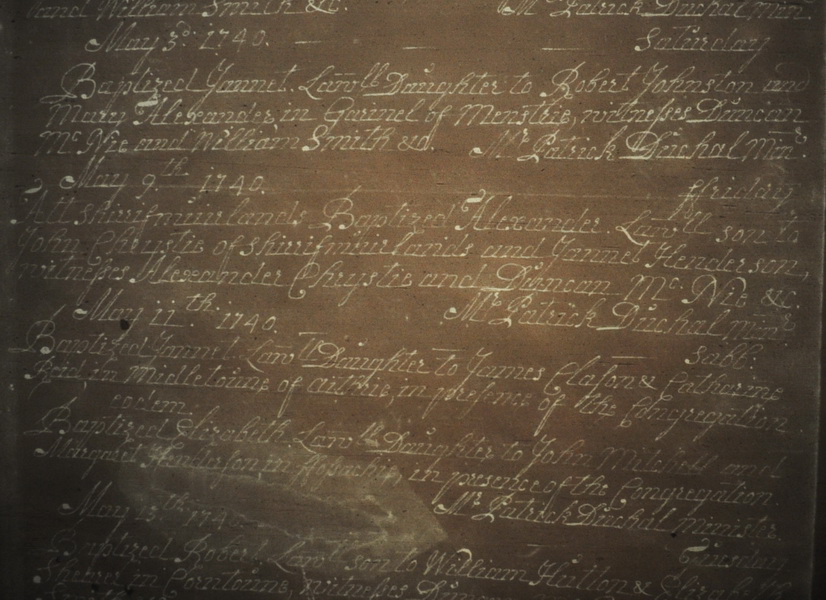 and William Smith &c. Mr Patrick Duchal Min.
May 3d. 1740. Saturday
Baptized Jannet. Lawll Daughter to Robert Johnston and
Mary Alexander in of Menstrie, witnesses Duncan
Mc Nie and William Smith &c. Mr Patrick Duchal Minr.
May 9th 1740. ffriday
Att shirrifmuirlands Baptized Alexander. Lawll son to
John Christie of shirrifmuirlands and Jannet Henderson,
witnesses Alexander Chrystie and Duncan Mc. Nie &c.
Mr Patrick Duchal minr
May 11th. 1740. sabb:
Baptized Jannet. Lawll Daughter to James & Catharine
Reid in Middletoune of in presence of the Congregation
eodem.
Baptized Elizabeth Lawll Daughter to John Mitchell and
Margaret Henderson in in presence of the Congregation.
Mr Patrick Duchal Minister.
May 13th 1740. Tuesday
Baptized Robert Lawll son to William Hutton &
in witnesses